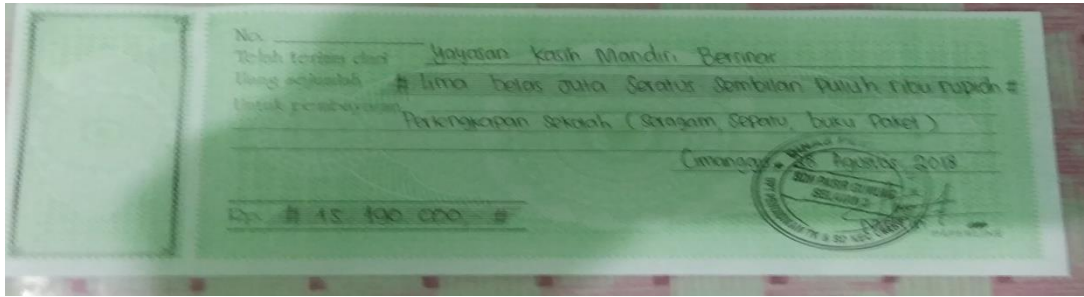 No.
Telah terima dari Yayasan Kasih Mandiri Bersinar
Uang sejumlah # Lima belas Juta Seratus Sembilan Puluh ribu rupiah #
Untuk pembayaran
Perlengkapan Sekolah (Seragam, Sepatu, buku Paket)
Cimanggu, Agustus 2018
Rp. # 15 190 000, #